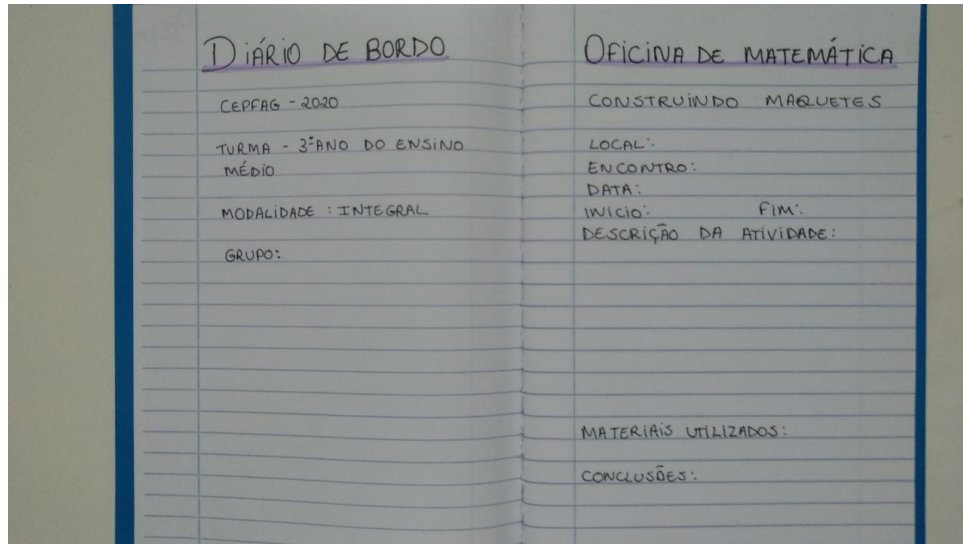 DIÁRIO DE BORDO
CEPFAG - 2020
TURMA - 3º ANO DO ENSINO
MÉDIO
MODALIDADE : INTEGRAL
GRUPO:
OFICINA DE MATEMÁTICA
CONSTRUINDO MAQUETES
LOCAL:
ENCONTRO:
DATA:
INICIO: FIM:
DESCRIÇÃO DA ATIVIDADE:
MATERIAIS UTILIZADOS:
CONCLUSÕES: